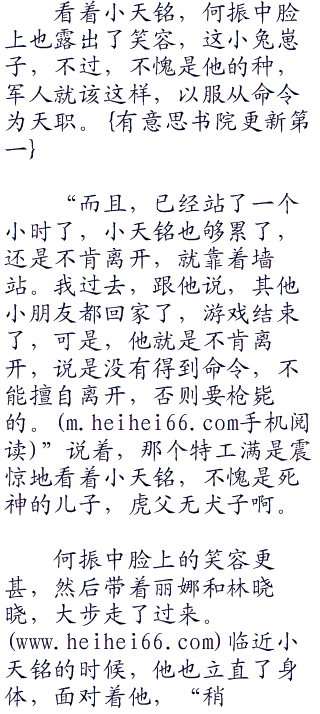 看着小天铭，何振中脸
上也露出了笑容，这小兔崽
子，不过，不愧是他的种，
军人就该这样，以服从命令
为天职。{有意思书院更新第
一}
“而且，已经站了一个
小时了，小天铭也够累了，
还是不肯离开，就靠着墙
站。我过去，跟他说，其他
小朋友都回家了，游戏结束
了，可是，他就是不肯离
开，说是没有得到命令，不
能擅自离开，否则要枪毙
的。(m.heihei66.com手机阅
读)”说着，那个特工满是震
惊地看着小天铭，不愧是死
神的儿子，虎父无犬子啊。
何振中脸上的笑容更
甚，然后带着丽娜和林晓
晓，大步走了过来。
(www.heihei66.com)临近小
天铭的时候，他也立直了身
体，面对着他，“稍